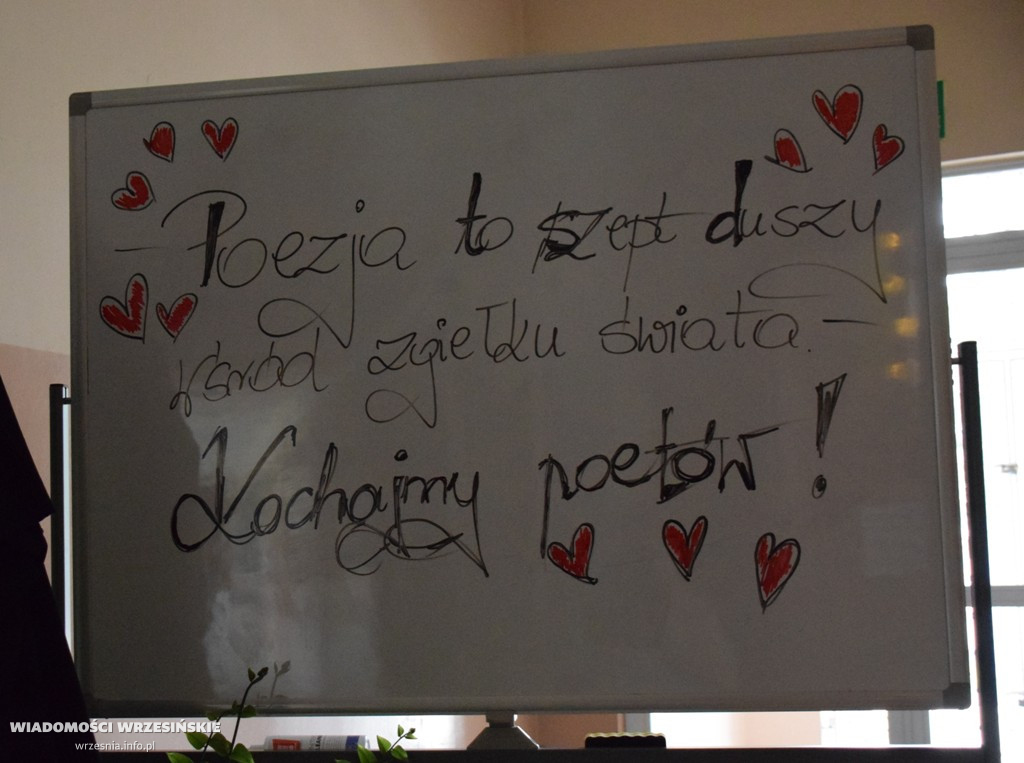 – Poezja to szept duszy
wśród zgiełku świata. –
Kochajmy poetów!
WIADOMOŚCI WRZESIŃSKIE
wrzesnia.info.pl